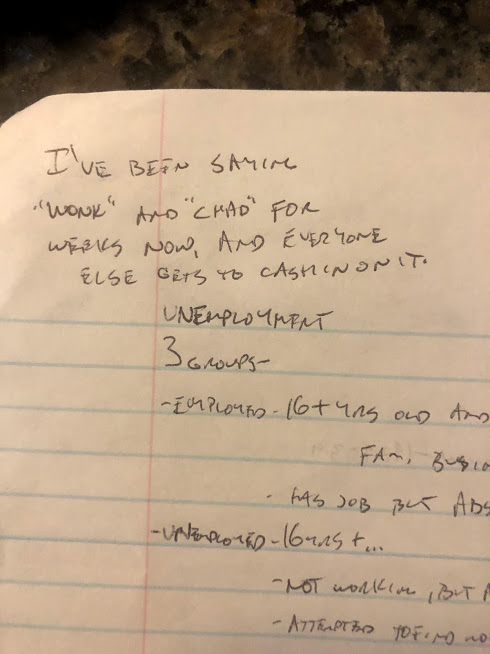 I'VE BEEN SAYING
"WONK" AND "CHAD" FOR
WEEKS NOW, AND EVERYONE
ELSE GETS TO CASH IN ON IT.
UNEMPLOYMENT
3 GROUPS-
-EMPLOYED-16+ YRS OLD AND
FAM, BUSIN
- HAS JOB BUT ABS
-UNEMPLOYED-16YRS+...
-NOT WORKING, BUT A
-ATTEMPTED TO FIND WO